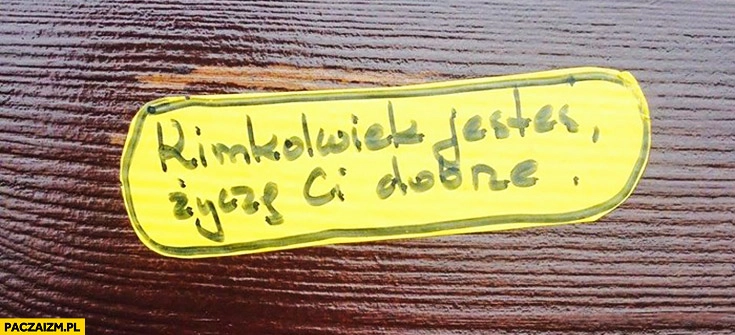 Kimkolwiek jesteś,
życzę Ci dobrze.
PACZAIZM.PL